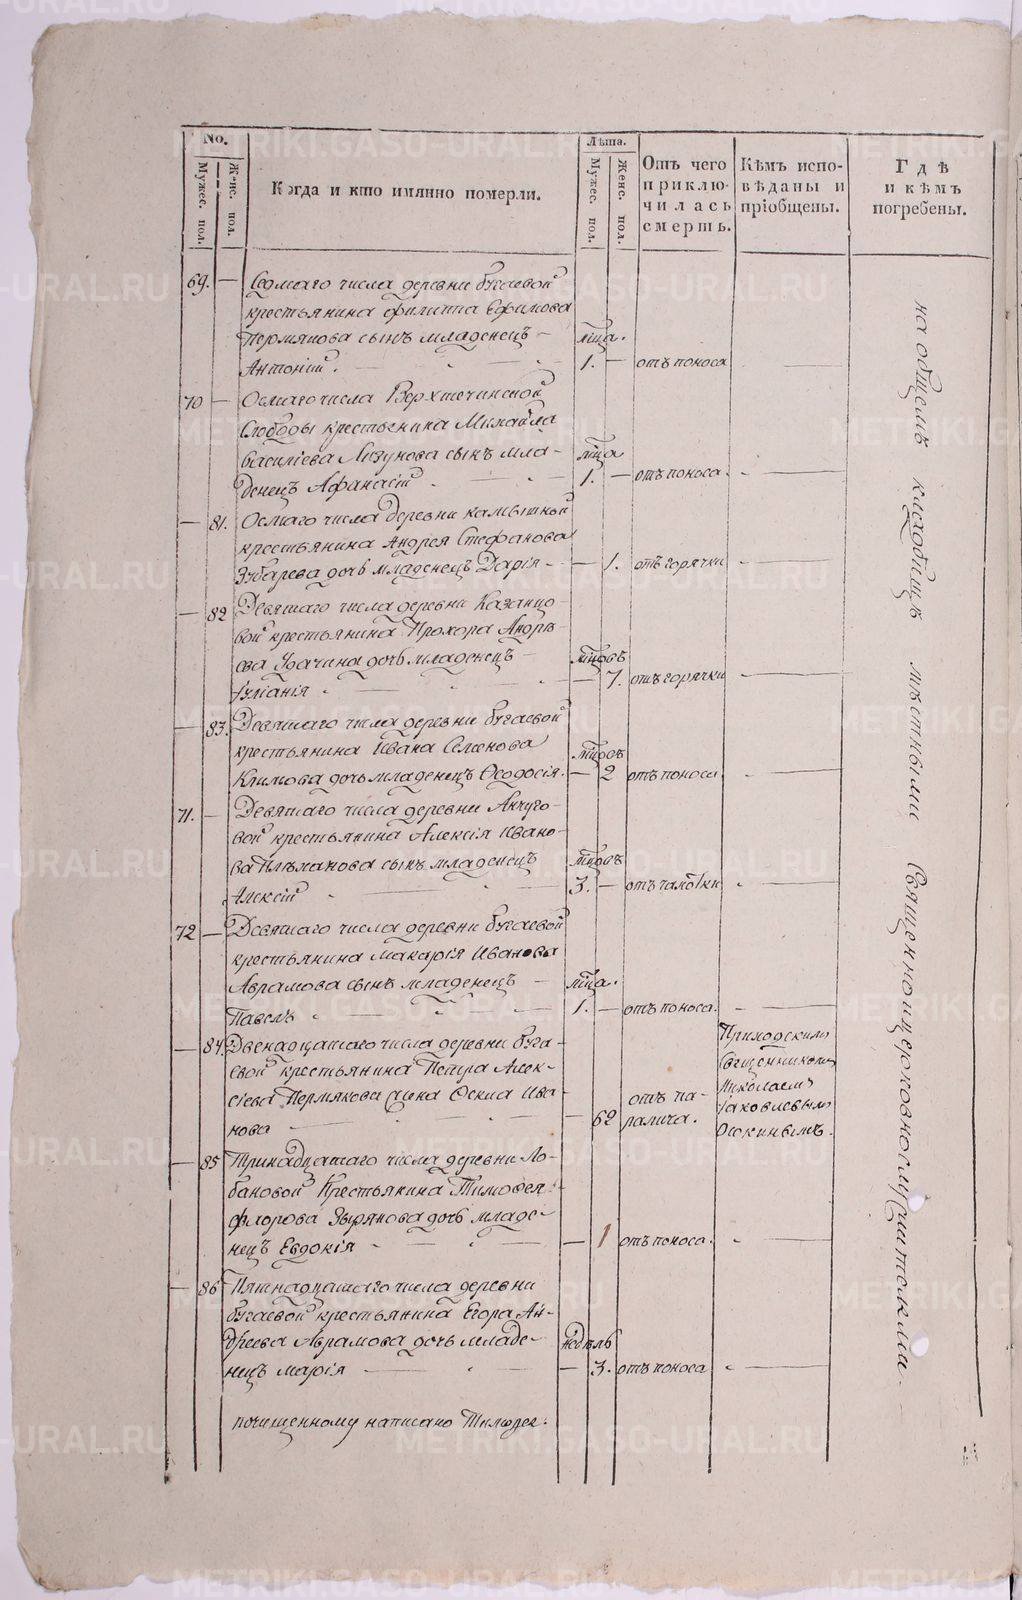 No.
Мужес. пол.
Женс. пол.
Когда и кто имянно померли.
Лѣта.
Мужес. пол.
Женс. пол.
Отъ чего
приклю-
чилась
смерть.
Кѣмъ испо-
вѣданы и
пріобщены.
Гдѣ
и кѣмъ
погребены.
69. — Седмаго числа деревни бугаевой
крестьянина филиппа Ефимова
Пермякова сынъ младенецъ — мца.
Антоній. 1. — отъ поноса
70 — Осмаго числа Верхтечинской
Слободы крестьенина Михайла
василіева Лизунова сынъ мла- мца
денецъ Афанасій 1. — отъ поноса.
— 81. Осмаго числа деревни камышной
крестьянина Андрея Стефанова
Зубарева дочь младенецъ Дарія — — 1. отъ горячки
— 82 Девятаго числа деревни Казанцо-
вой крестьянина Прохора Андрѣ-
ева Удачина дочь младенецъ — мцовъ
Іуліанія — 7. отъ горячки
— 83. Девятаго числа деревни бугаевой
крестьянина Ивана Семенова мцовъ
Климова дочь младенецъ Ѳеодосія. — 2 отъ поноса
71. — Девятаго числа деревни Анчуго-
вой крестьянина Алексія Ивано-
ва сынъ младенецъ мцовъ
Алексій 3. — отъ
72 — Девятаго числа деревни бугаевой
крестьянина макарія Иванова
Аврамова сынъ младенецъ — мца.
Павелъ 1. — отъ поноса.
— 84. Двенадцатаго числа деревни буга-
евой крестьянина Петра Алек-
сіева Пермякова жена Ива-
нова — 62 отъ па-
ралича.
Приходскимъ
Священникомъ
Николаемъ
Іаковлевымъ
— 85 Тринадцатаго числа деревни Ло-
бановой Крестьянина Тимофея
флорова Зырянова дочь младе-
нецъ Евдокія — 1 отъ поноса.
— 86 Пятнадцатаго числа деревни
бугаевой крестьянина Егора Ан-
дреева Аврамова дочь младе- недѣль
нецъ марія — 3. отъ поноса
почищенному написано Тимофея.
на общемъ кладбищѣ мѣстными Священноицерковнослужительми.
METRIKI.GASO-URAL.RU